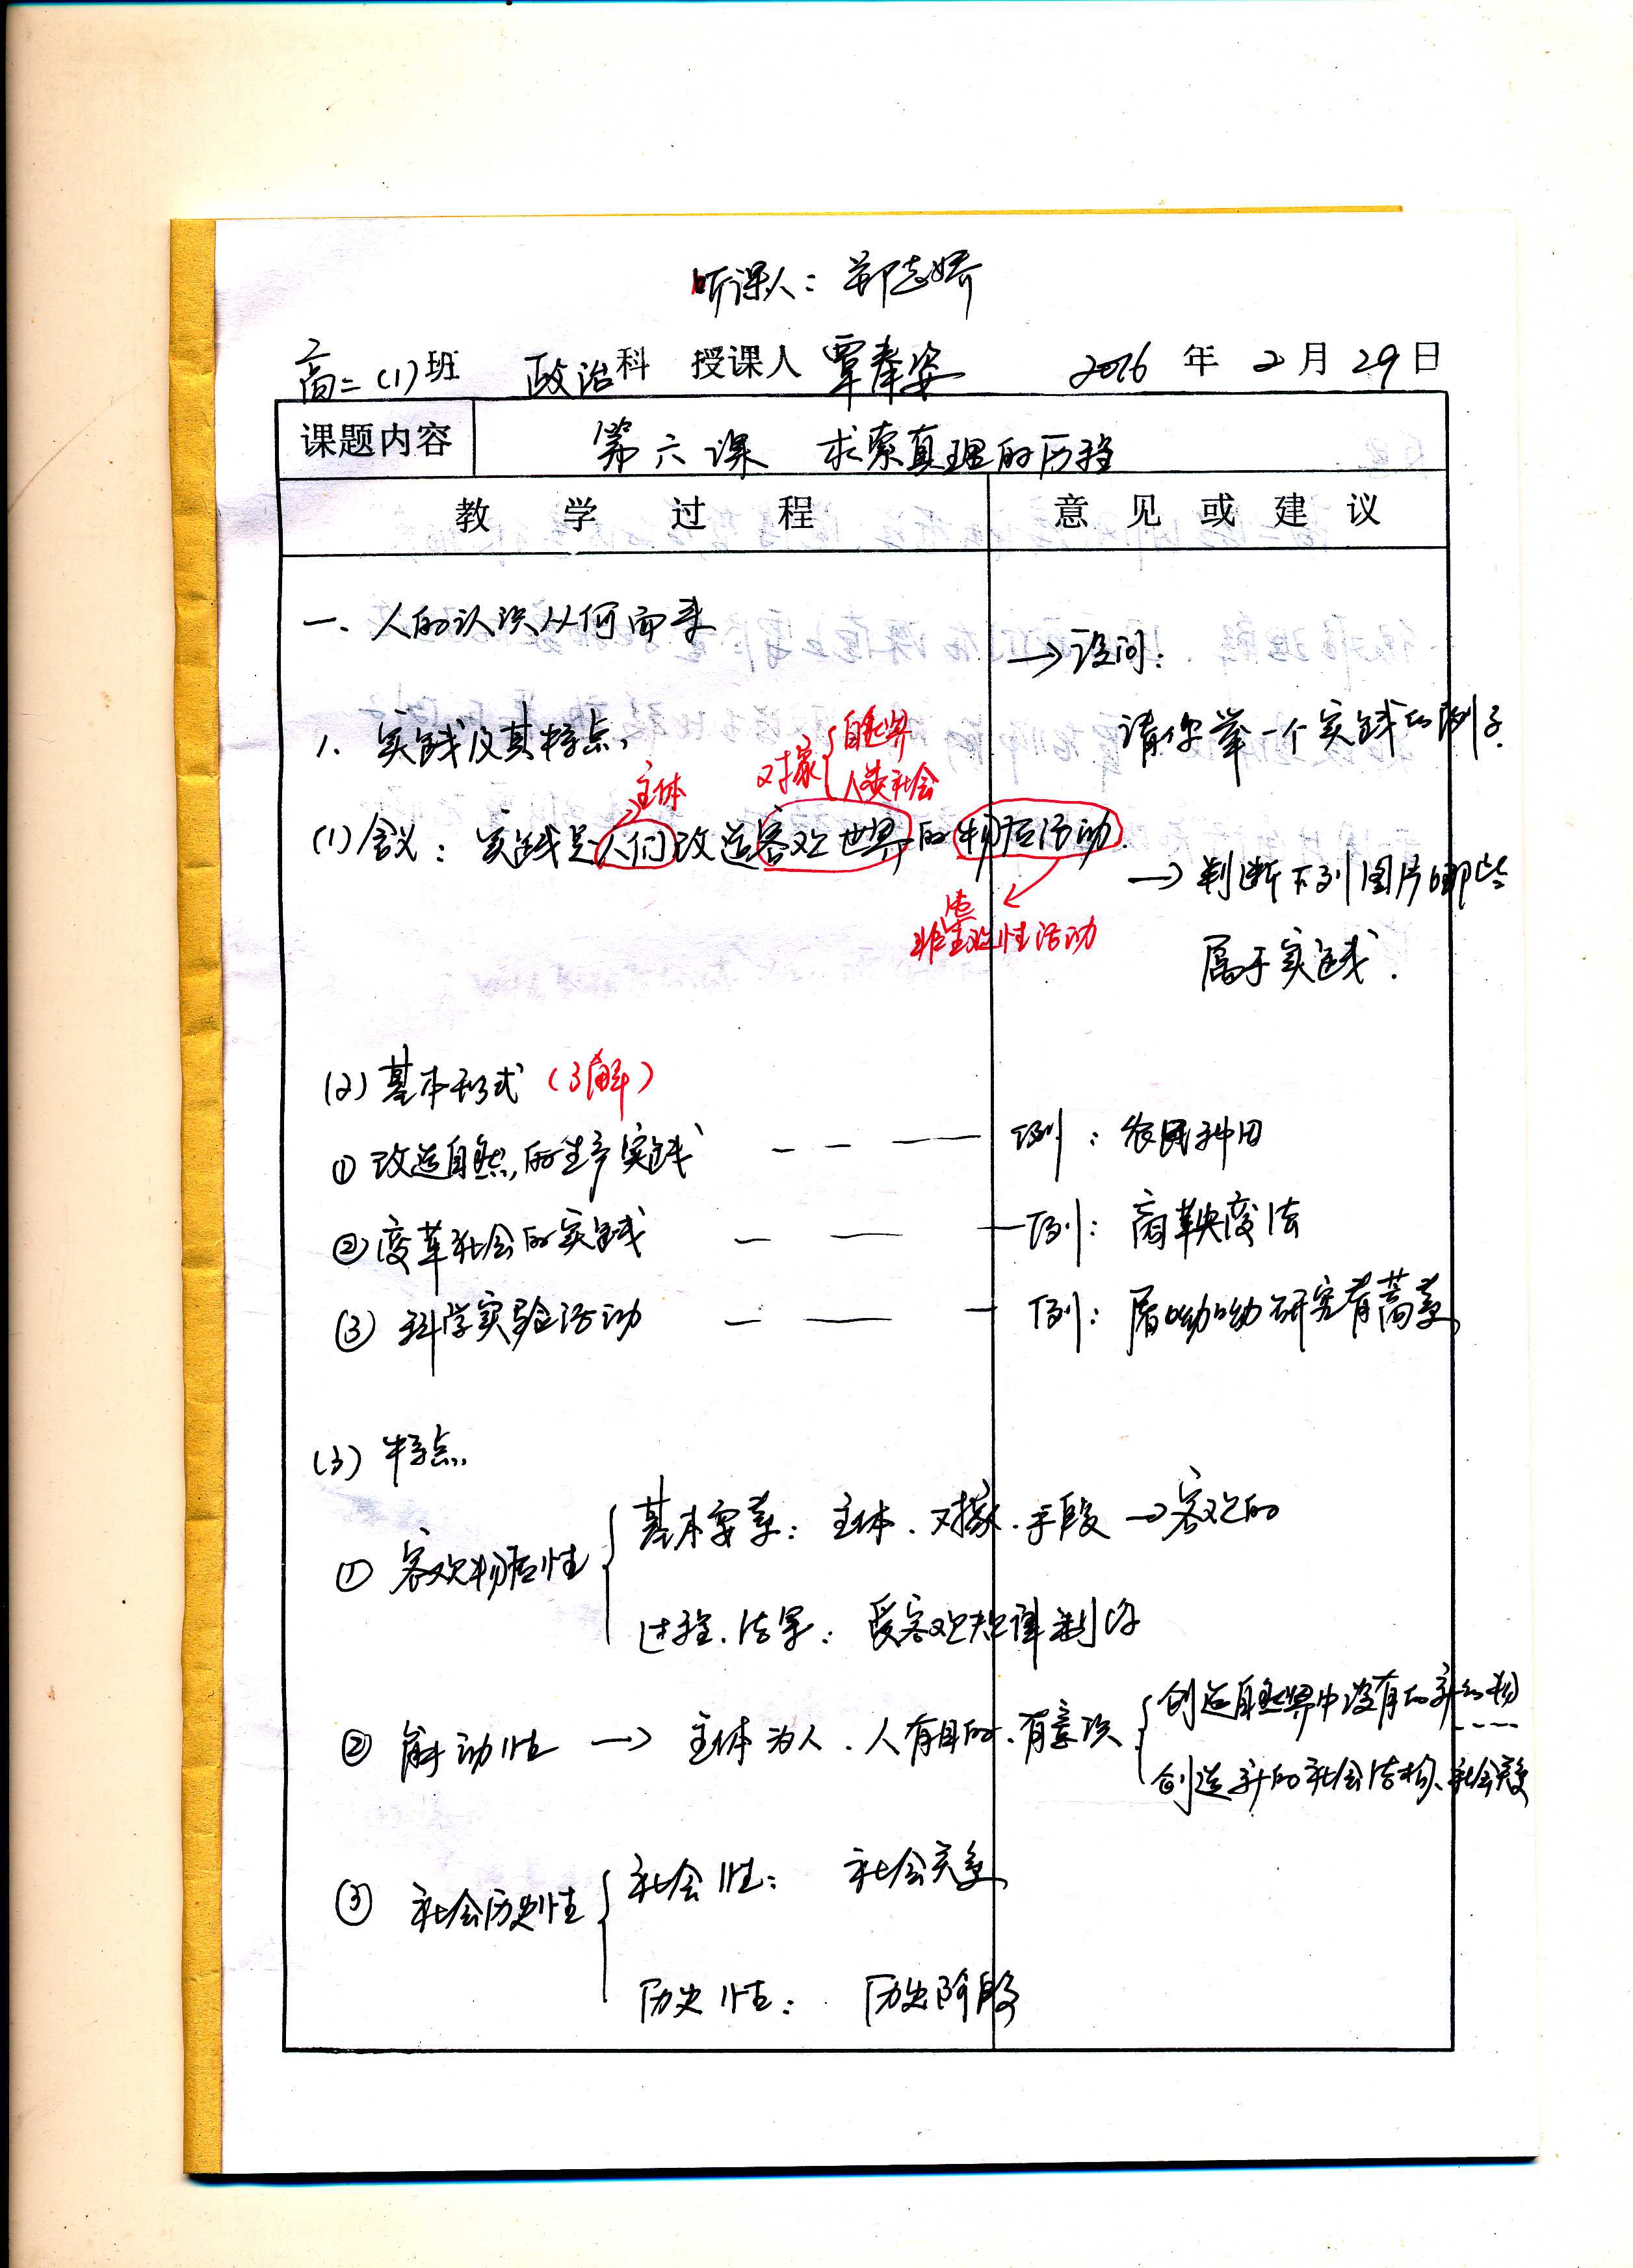 听课人：郑志娇
高二(1)班 政治科 授课人 覃奉姿 2016年2月29日
课题内容 第六课 求索真理的历程
教学过程 意见或建议
一、人的认识从何而来
→设问：
1. 实践及其特点
请你举一个实践的例子.
主体 对象{自然界
人类社会
(1)含义：实践是人们改造客观世界的物质活动.
→判断下列图片哪些
属于实践.
非主观性活动
(2)基本形式（了解）
①改造自然的生产实践 — — — — 例：农民种田
②变革社会的实践 — — — 例：商鞅变法
③科学实验活动 — — — 例：屠呦呦研究青蒿素
(3)特点
①客观物质性{基本要素：主体、对象、手段→客观的
过程、结果：受客观规律制约
②能动性→主体为人、人有目的、有意识{创造自然界中没有的新事物
创造新的社会结构、社会关系
③社会历史性{社会性：社会关系
历史性：历史阶段